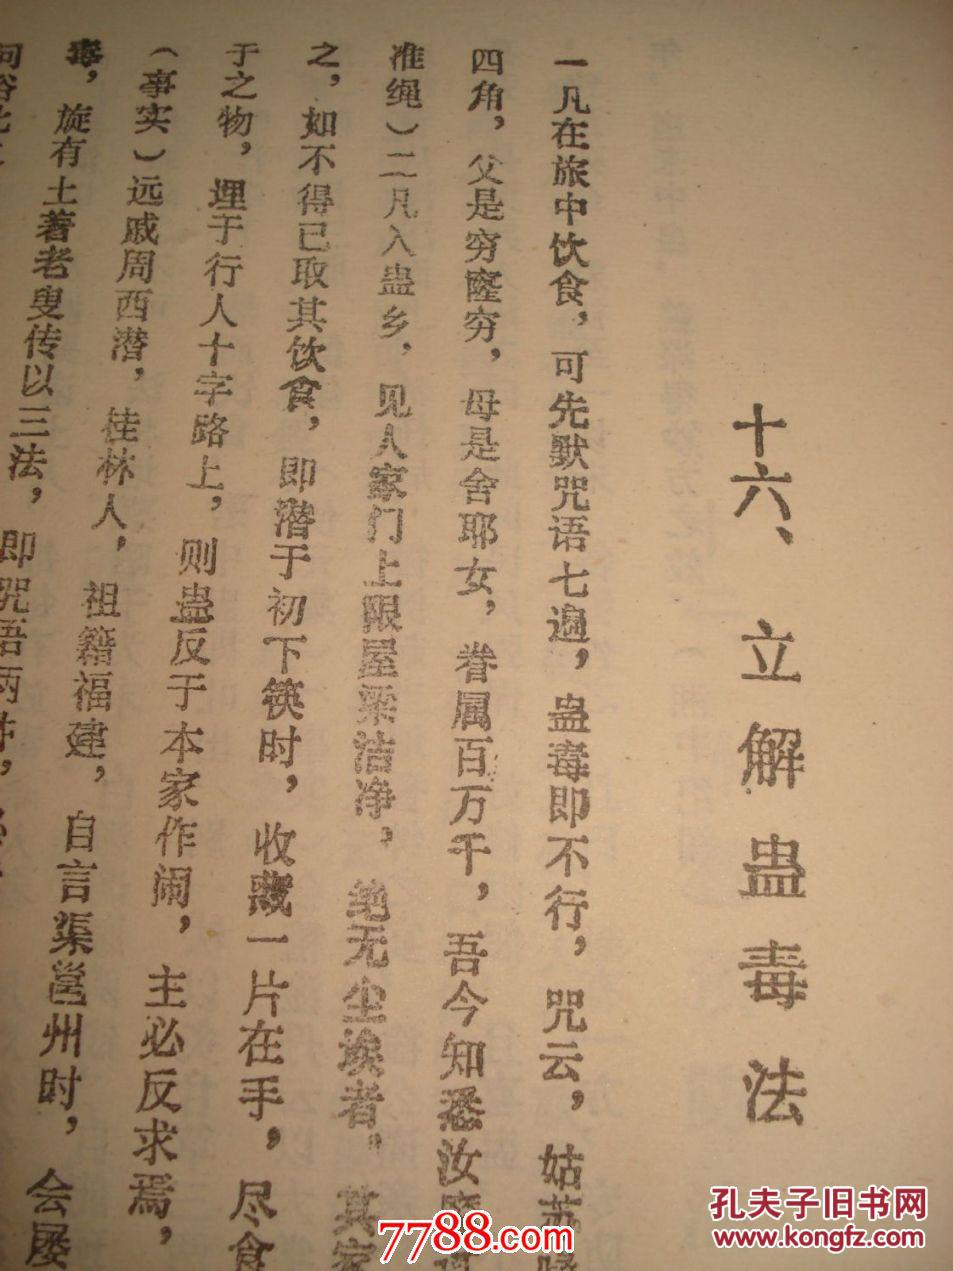 十六、立解蛊毒法
一凡在旅中饮食，可先默咒语七遍，蛊毒即不行，咒云，姑苏
四角，父是穷窿穷，母是舍耶女，眷属百万千，吾今知悉汝
准绳）二凡入蛊乡，见人家门上限屋梁洁净，绝无尘埃者，其家
之，如不得已取其饮食，即潜于初下筷时，收藏一片在手，尽食
于之物，埋于行人十字路上，则蛊反于本家作闹，主必反求焉，
（事实）远戚周西潜，桂林人，祖籍福建，自言渠邕州时，会屡
毒，旋有土著老叟传以三法，即咒语两
7788.com
孔夫子旧书网
www.kongfz.com